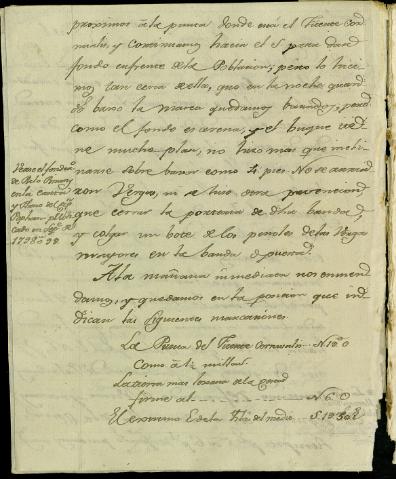 proximos à la punta donde está el Fuerte Corn
wallis, y Continuamos hacia el S para dar
fondo enfrente de la Poblacion; pero lo hici
mos tan cerca de ella, que en la noche quan
do baxó la marea quedamos barados; pero
como el fondo es arena, y el buque tie
ne mucho plan, no hizo mas que incli
narse sobre babor como 4 pies. No se arria
ron Vergas, ni se hizo otra prevencion
que cerrar la porteria de dha banda,
y colgar un bote de los penoles de las Vergas
mayores en la banda opuesta.
Vease el fondeadero
de Pulo Pinang
en la Carta
y Plano del Cap.
Popham publi
cado en
1798 ò 99
A la mañana inmediata nos enmen
damos, y quedamos en la posicion que in
dican las siguientes marcaciones.
La Punta del Fuerte Cornwalis N 18° O
como à ½ milla
La tierra mas lexana de la
firme al N 6° O
El extremo E de la Isla del medio S 12° 30' E